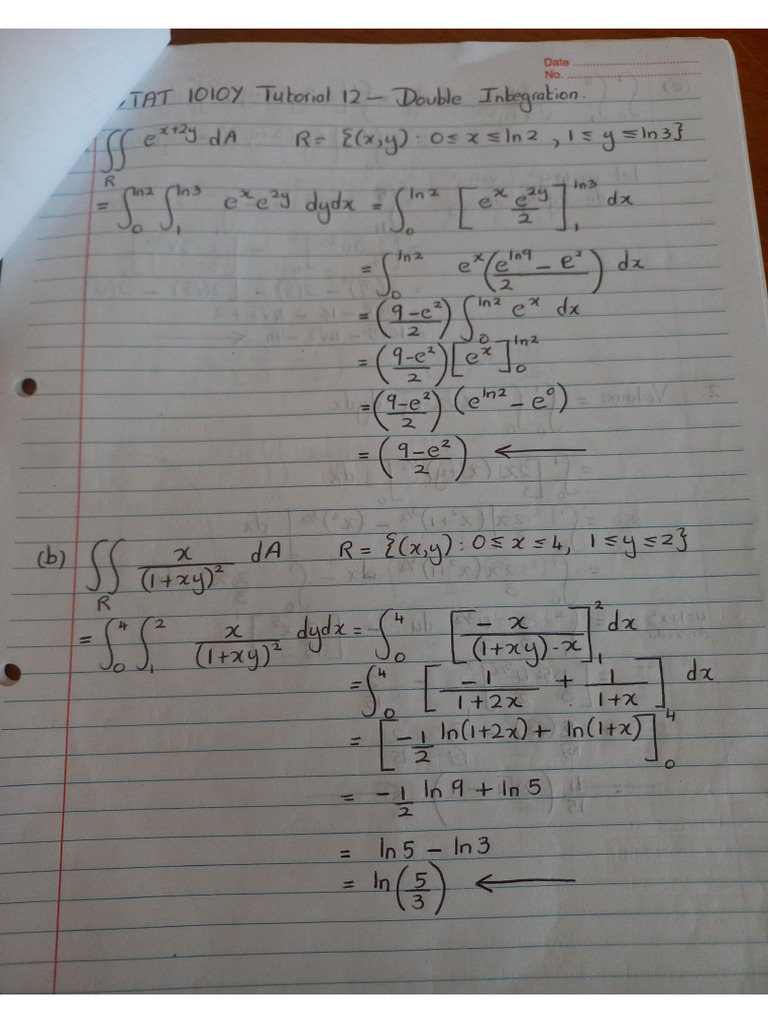 Date
No.
STAT 1010Y Tutorial 12 – Double Integration.
∬_R e^{x+2y} dA R = {(x,y) : 0 ≤ x ≤ ln2 , 1 ≤ y ≤ ln3}
= ∫_0^{ln2} ∫_1^{ln3} e^x e^{2y} dydx = ∫_0^{ln2} [e^x e^{2y}/2]_1^{ln3} dx
= ∫_0^{ln2} e^x ((e^{ln9} – e^2)/2) dx
= ((9–e^2)/2) ∫_0^{ln2} e^x dx
= ((9–e^2)/2) [e^x]_0^{ln2}
= ((9–e^2)/2) (e^{ln2} – e^0)
= ((9–e^2)/2) ←
(b) ∬_R x/(1+xy)^2 dA R = {(x,y) : 0 ≤ x ≤ 4, 1 ≤ y ≤ 2}
= ∫_0^4 ∫_1^2 x/(1+xy)^2 dydx = ∫_0^4 [–x/((1+xy)·x)]_1^2 dx
= ∫_0^4 [–1/(1+2x) + 1/(1+x)] dx
= [–1/2 ln(1+2x) + ln(1+x)]_0^4
= –1/2 ln 9 + ln 5
= ln5 – ln3
= ln(5/3) ←